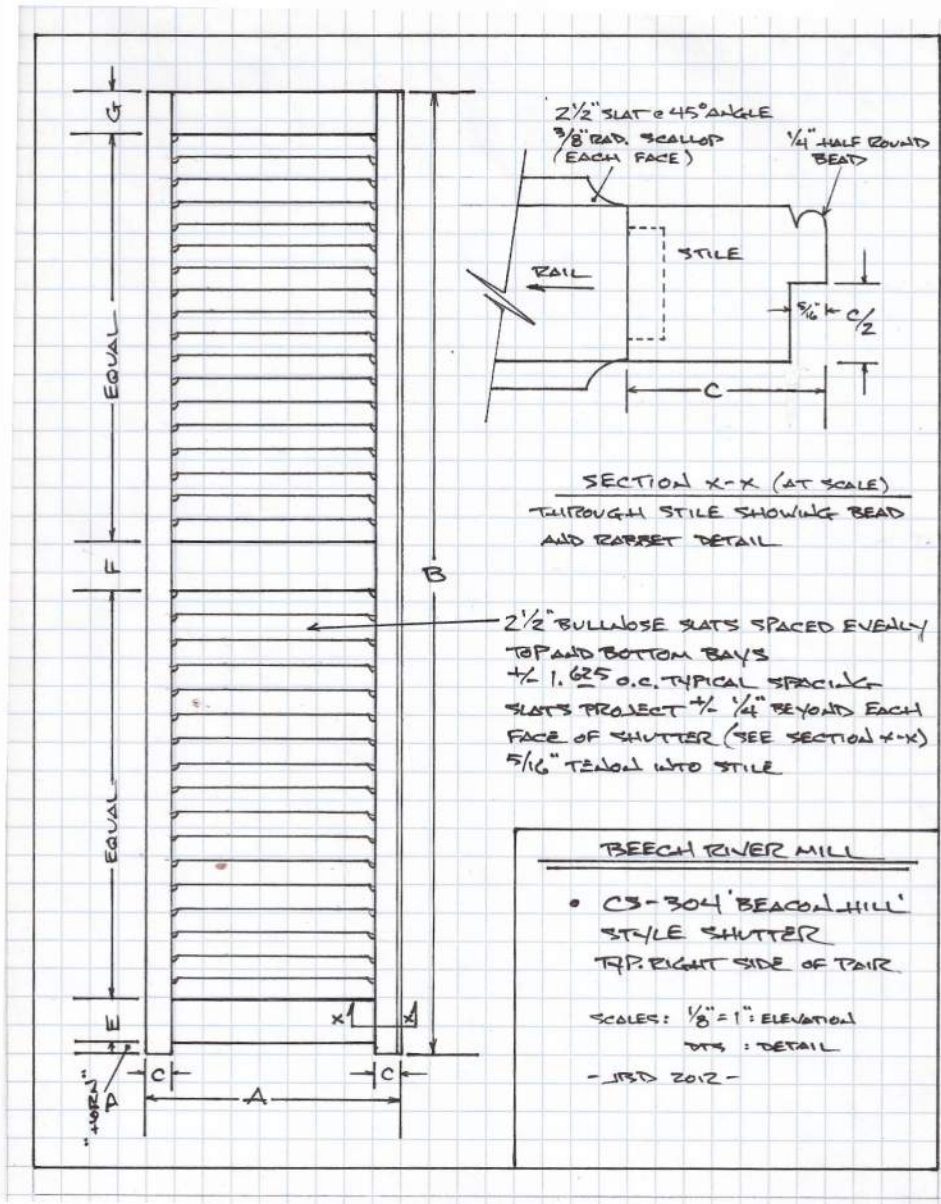 G
EQUAL
F
EQUAL
E
D
"HORN"
C
A
C
B
X
X
2 1/2" SLAT @ 45° ANGLE
3/8" RAD. SCALLOP
(EACH FACE)
1/4" HALF ROUND
BEAD
STILE
RAIL
5/16"
C/2
C
SECTION X-X (AT SCALE)
THROUGH STILE SHOWING BEAD
AND RABBET DETAIL
2 1/2" BULLNOSE SLATS SPACED EVENLY
TOP AND BOTTOM BAYS
+/- 1.625 O.C. TYPICAL SPACING
SLATS PROJECT +/- 1/4" BEYOND EACH
FACE OF SHUTTER (SEE SECTION X-X)
5/16" TENON INTO STILE
BEECH RIVER MILL
• CS-304 'BEACON HILL'
STYLE SHUTTER
TYP. RIGHT SIDE OF PAIR
SCALES: 1/8" = 1": ELEVATION
DTS : DETAIL
- JBD 2012 -